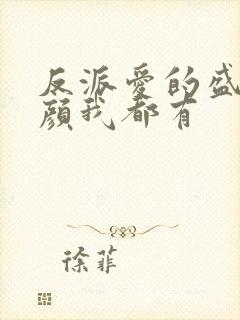 反派爱的盛
颜我都有
徐菲